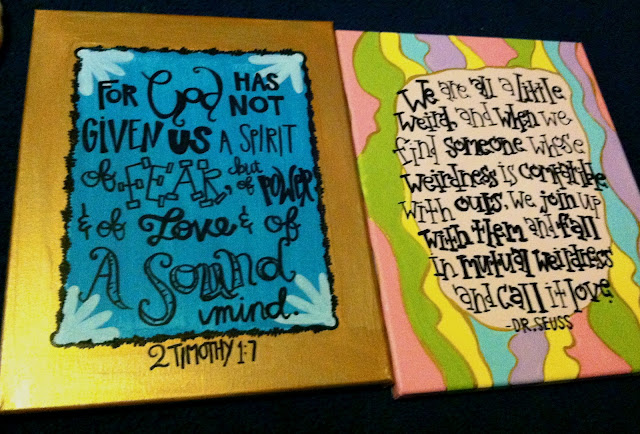 FOR God HAS
NOT
GIVEN US A SPIRIT
of FEAR, but
of POWER
& of Love & of
A Sound
mind.
2 TIMOTHY 1:7
We are all a little
weird, and when we
find someone whose
weirdness is compatible
with ours, we join up
with them and fall
in mutual weirdness
and call it love.
-DR. SEUSS